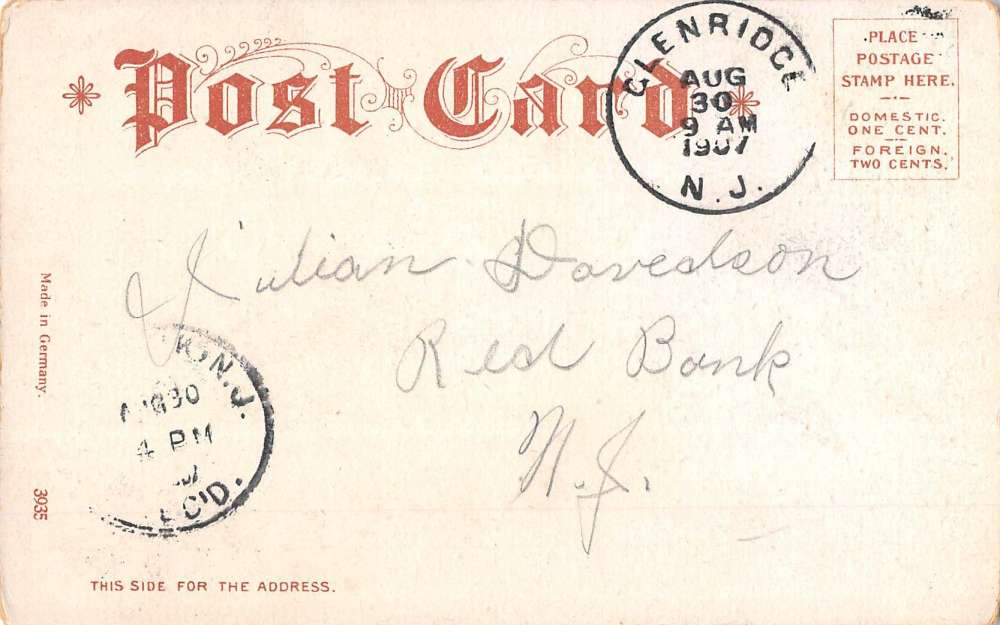 Post Card
GLENRIDGE
AUG
30
9 AM
1907
N.J.
PLACE
POSTAGE
STAMP HERE.
DOMESTIC.
ONE CENT.
FOREIGN.
TWO CENTS.
Julian Davedson
Red Bank
N.J.
K, N.J.
AUG 30
4 PM
REC'D.
Made in Germany.
3935
THIS SIDE FOR THE ADDRESS.